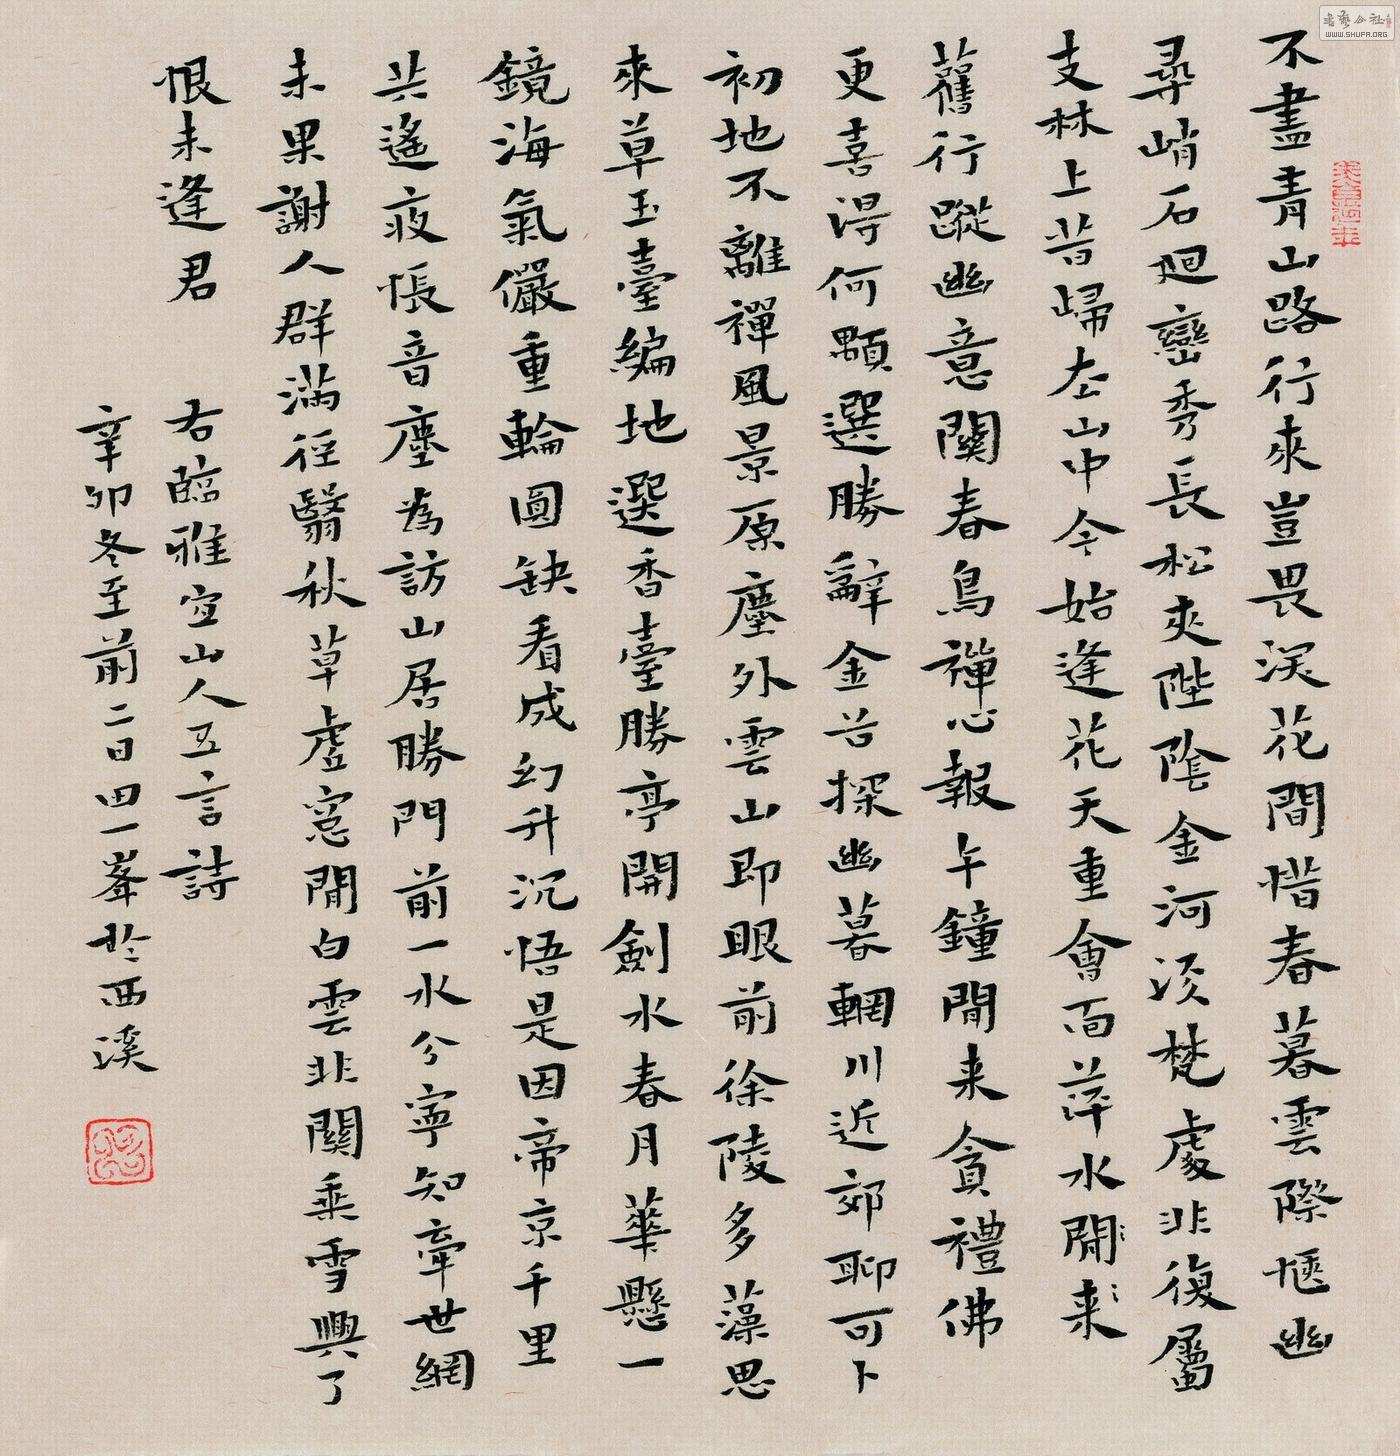 不盡青山路行來豈畏深花間惜春暮雲際愜幽
尋峭石迴巒秀長松夾陛陰金河須梵處非復屬
支林上昔歸左山中今始逢花天重會面萍水開来
舊行蹤幽意關春鳥禪心報午鐘閒来貪禮佛
更喜得何顒選勝辭金谷探幽慕輞川近郊聊可卜
初地不離禪風景原塵外雲山即眼前徐陵多藻思
來草玉臺編地選香臺勝亭開劍水春月華懸一
鏡海氣儼重輪圓缺看成幻升沉悟是因帝京千里
共遙夜悵音塵為訪山居勝門前一水分寧知牽世網
未果謝人群滿徑翳秋草虛窓閒白雲非關乘雪興了
恨未逢君
右臨雅宜山人五言詩
辛卯冬至前二日田一峯於西溪
書藝公社
WWW.SHUFA.ORG